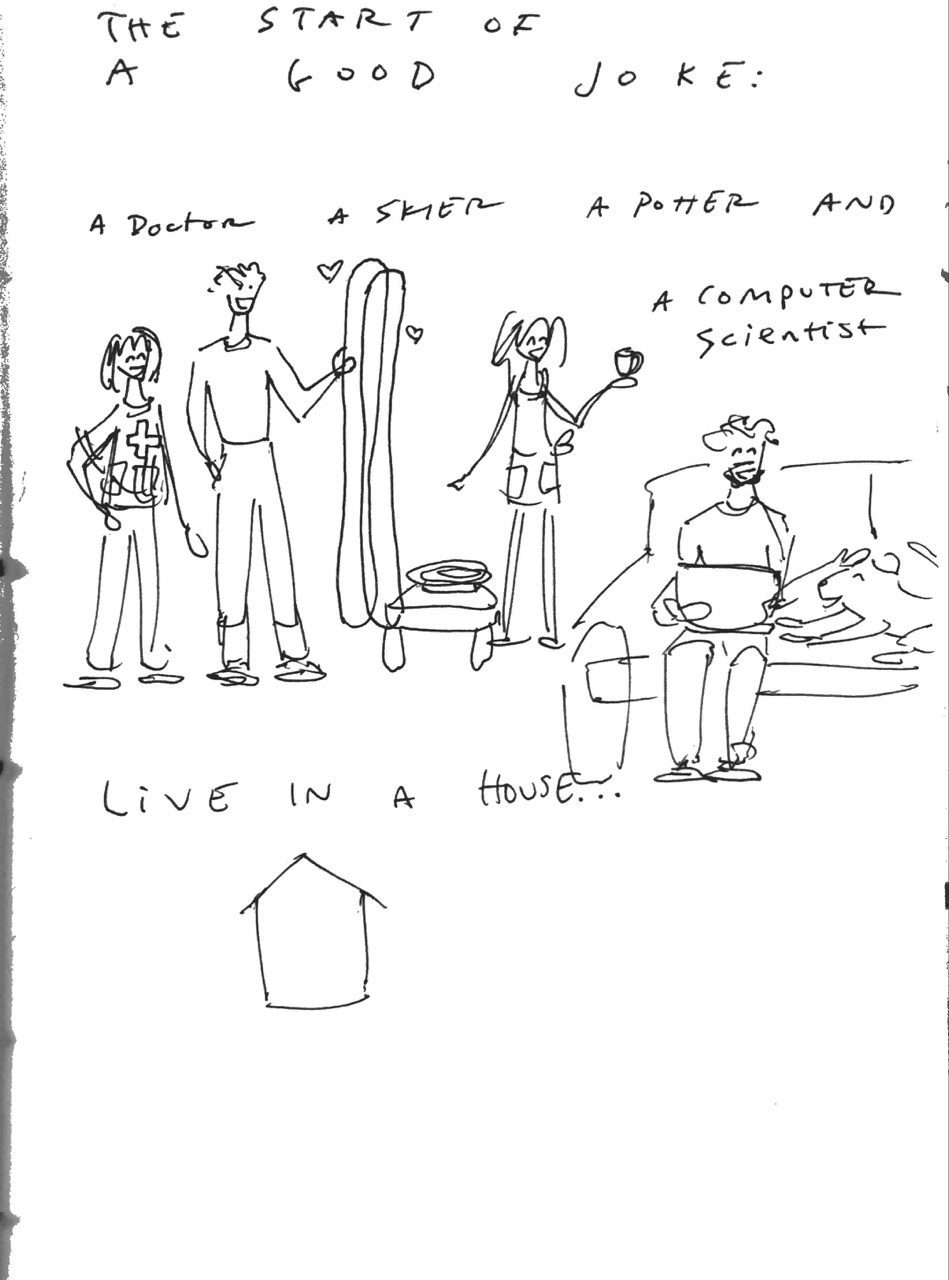 THE START OF
A GOOD JOKE:
A DOCTOR A SKIER A POTTER AND
A COMPUTER
Scientist
LIVE IN A HOUSE...